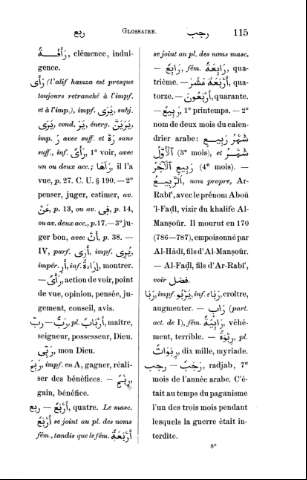 ربع GLOSSAIRE. رجب 115
رَأْفَةٌ, clémence, indul-
gence.
رَأَى (l'alif hamza est presque
toujours retranché à l'impf.
et à l'imp.), impf. يَرَى, subj.
يَرَى, cond. يَرَ, énerg. يَرَيَنَّ,
imp. رَ avec suff. et رَهْ sans
suff., inf. رَأْىٌ, 1° voir, avec
un ou deux acc.; رَآهَا, il l'a
vue, p. 27. C. U. § 190. — 2°
penser, juger, estimer, av.
عَنْ, p. 13, ou av. فِى, p. 14,
ou av. deux acc., p. 17. — 3° ju-
ger bon, avec أَنْ, p. 38. —
IV, parf. أَرَى, impf. يُرِى,
impér. أَرِ, inf. إِرَاءَةٌ, montrer.
— رَأْىٌ, action de voir, point
de vue, opinion, pensée, ju-
gement, conseil, avis.
رَبٌّ — رب, pl. أَرْبَابٌ, maître,
seigneur, possesseur, Dieu.
رَبِّى, mon Dieu.
رَبِحَ, impf. en A, gagner, réali-
ser des bénéfices. — رِبْحٌ,
gain, bénéfice.
ربع — أَرْبَعٌ, quatre. Le masc.
أَرْبَعٌ se joint au pl. des noms
fém., tandis que le fém. أَرْبَعَةٌ
se joint au pl. des noms masc.
— رَابِعٌ, fém. رَابِعَةٌ, qua-
trième. — أَرْبَعَةَ عَشَرَ, qua-
torze. — أَرْبَعُونَ, quarante.
— رَبِيعٌ, 1° printemps. — 2°
nom de deux mois du calen-
drier arabe: شَهْرُ رَبِيعٍ
الْأَوَّلُ (3e mois), et شَهْرُ
رَبِيعٍ الْآخَرُ (4e mois). —
الرَّبِيعُ, nom propre, Ar-
Rabî', avec le prénom Aboû
'l-Faḍl, vizir du khalife Al-
Manṣoûr. Il mourut en 170
(786—787), empoisonné par
Al-Hâdî, fils d'Al-Manṣoûr.
— Al-Faḍl, fils d'Ar-Rabî',
voir فضل.
رَبَا, impf. يَرْبُو, inf. رِبًا, croître,
augmenter. — رَابٍ (part.
act. de I), fém. رَابِيَةٌ, véhé-
ment, terrible. — رِبْوَةٌ, pl.
رِبْوَاتٌ, dix mille, myriade.
رجب — رَجَبٌ, radjab, 7e
mois de l'année arabe. C'é-
tait au temps du paganisme
l'un des trois mois pendant
lesquels la guerre était in-
terdite.
8*